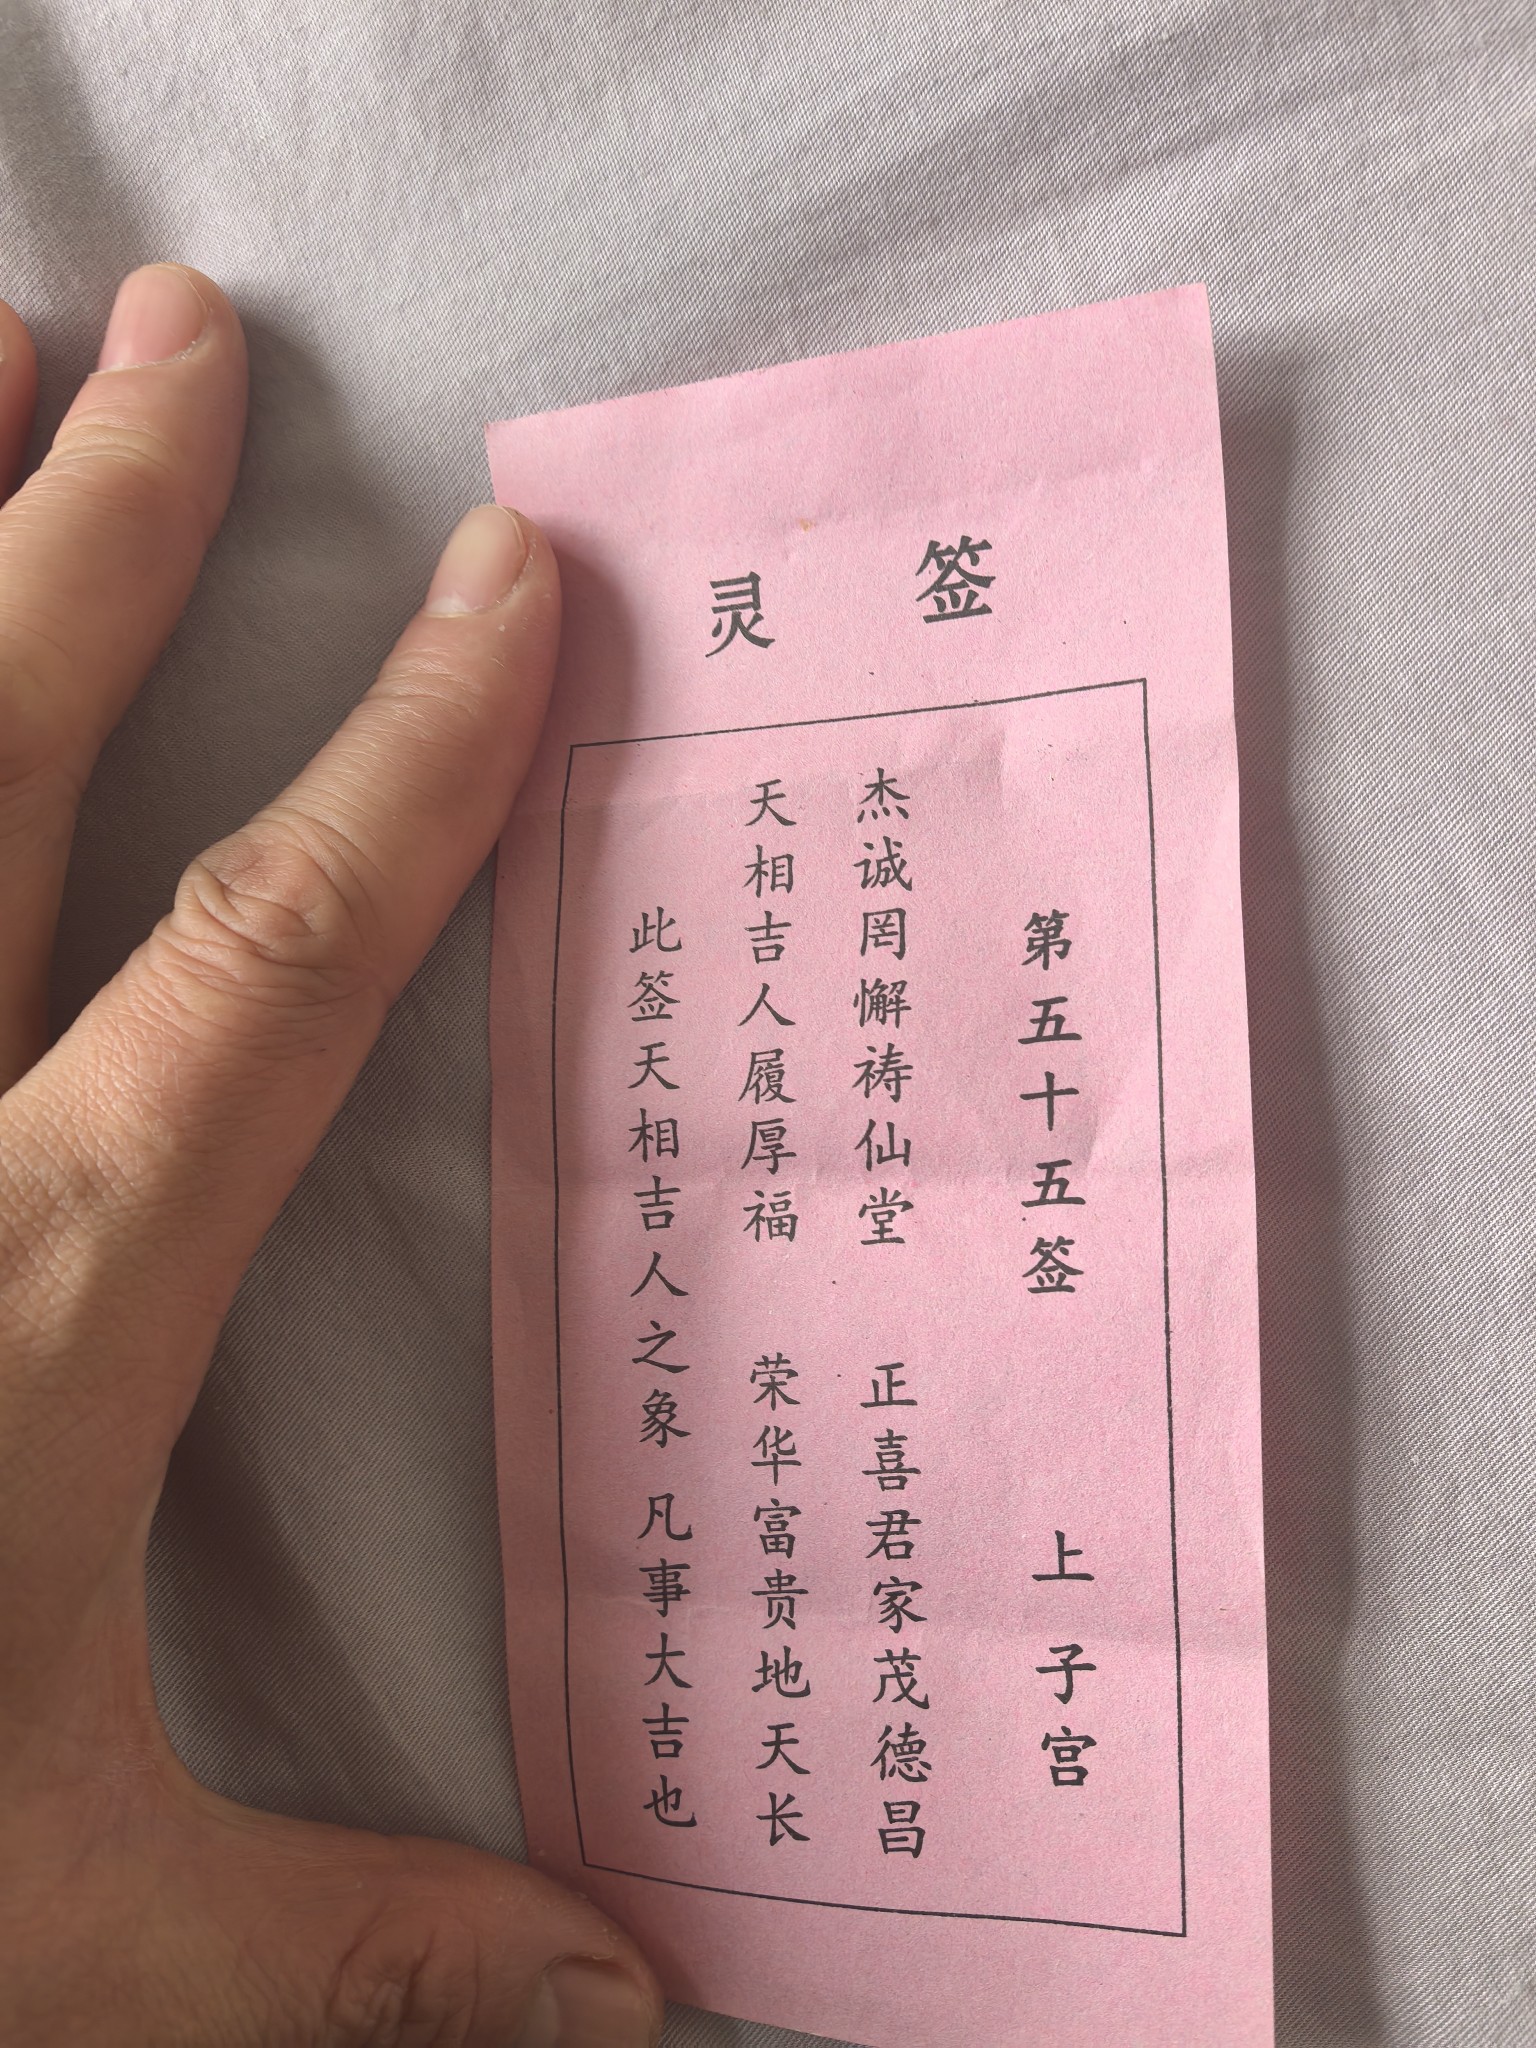 灵 签
第五十五签 上 子宫
杰诚罔懈祷仙堂 正喜君家茂德昌
天相吉人履厚福 荣华富贵地天长
此签天相吉人之象 凡事大吉也